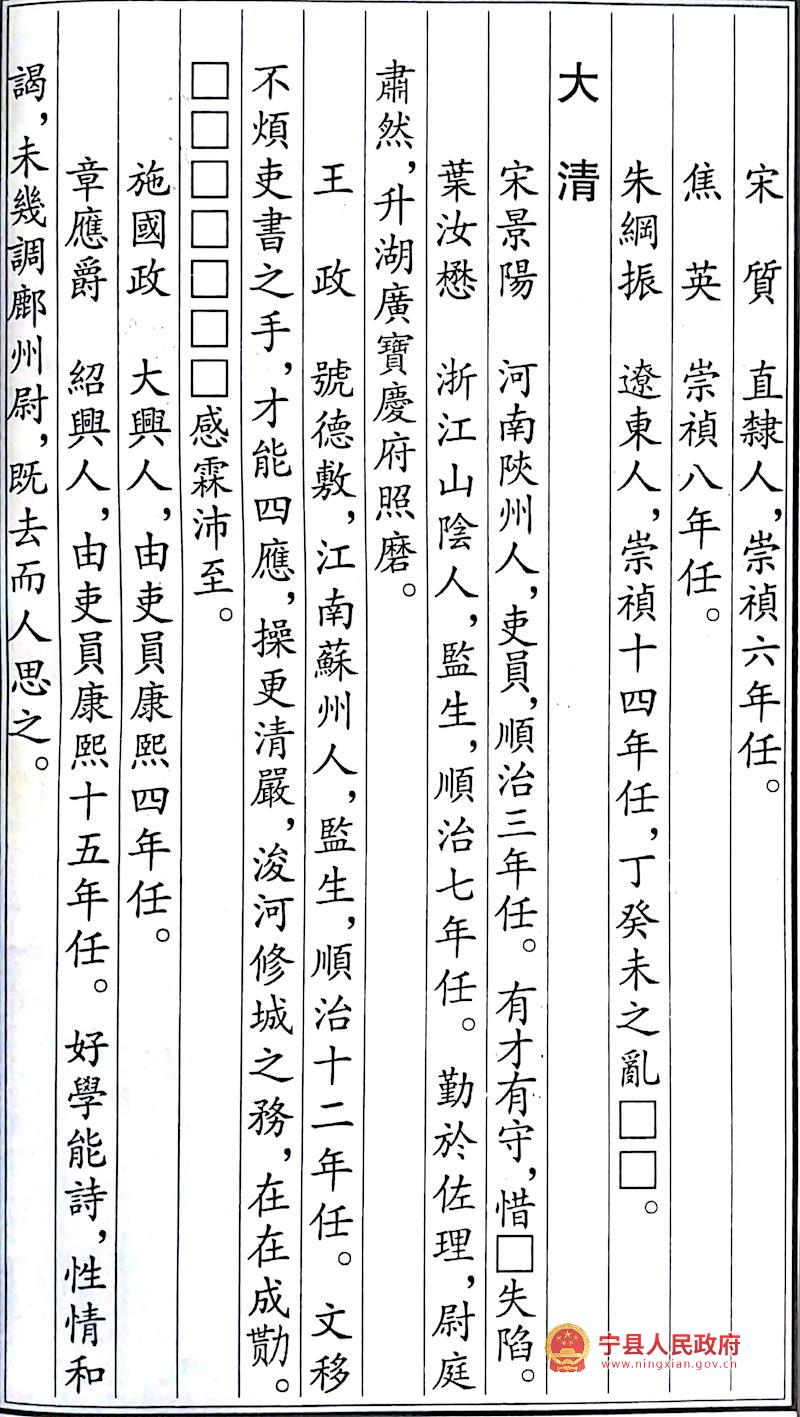 宋　質　直隸人，崇禎六年任。
焦　英　崇禎八年任。
朱綱振　遼東人，崇禎十四年任，丁癸未之亂□□。
大　清
宋景陽　河南陝州人，吏員，順治三年任。有才有守，惜□失陷。
葉汝懋　浙江山陰人，監生，順治七年任。勤於佐理，尉庭
肅然，升湖廣寶慶府照磨。
王　政　號德敷，江南蘇州人，監生，順治十二年任。文移
不煩吏書之手，才能四應，操更清嚴，浚河修城之務，在在成勩。
□□□□□□□感霖沛至。
施國政　大興人，由吏員康熙四年任。
章應爵　紹興人，由吏員康熙十五年任。好學能詩，性情和
謁，未幾調鄜州尉，既去而人思之。
宁县人民政府
www.ningxian.gov.cn